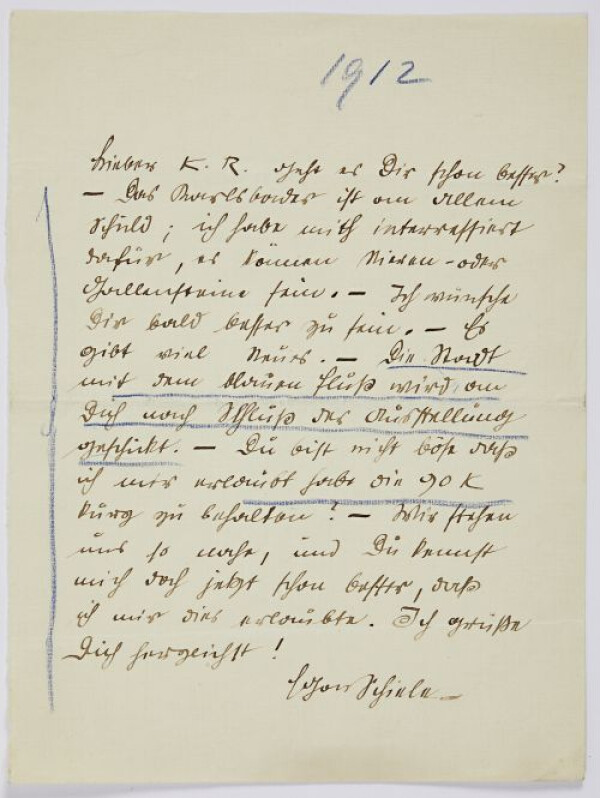 1912
Lieber K. R. geht es Dir schon besser?
– Das Karlsbader ist an allem
Schuld; ich habe mich interressiert
dafür, es können Nieren- oder
Gallensteine sein. – Ich wünsche
Dir bald besser zu sein. – Es
gibt viel Neues. – Die Stadt
mit dem blauen Fluß wird an
Dich nach Schluß der Ausstellung
geschickt. – Du bist nicht böse daß
ich mir erlaubt habe die 90 K
kurz zu behalten? – Wir stehen
uns so nahe, und Du kennst
mich doch jetzt schon besser, daß
ich mir dies erlaubte. Ich grüße
Dich herzlichst!
Egon Schiele